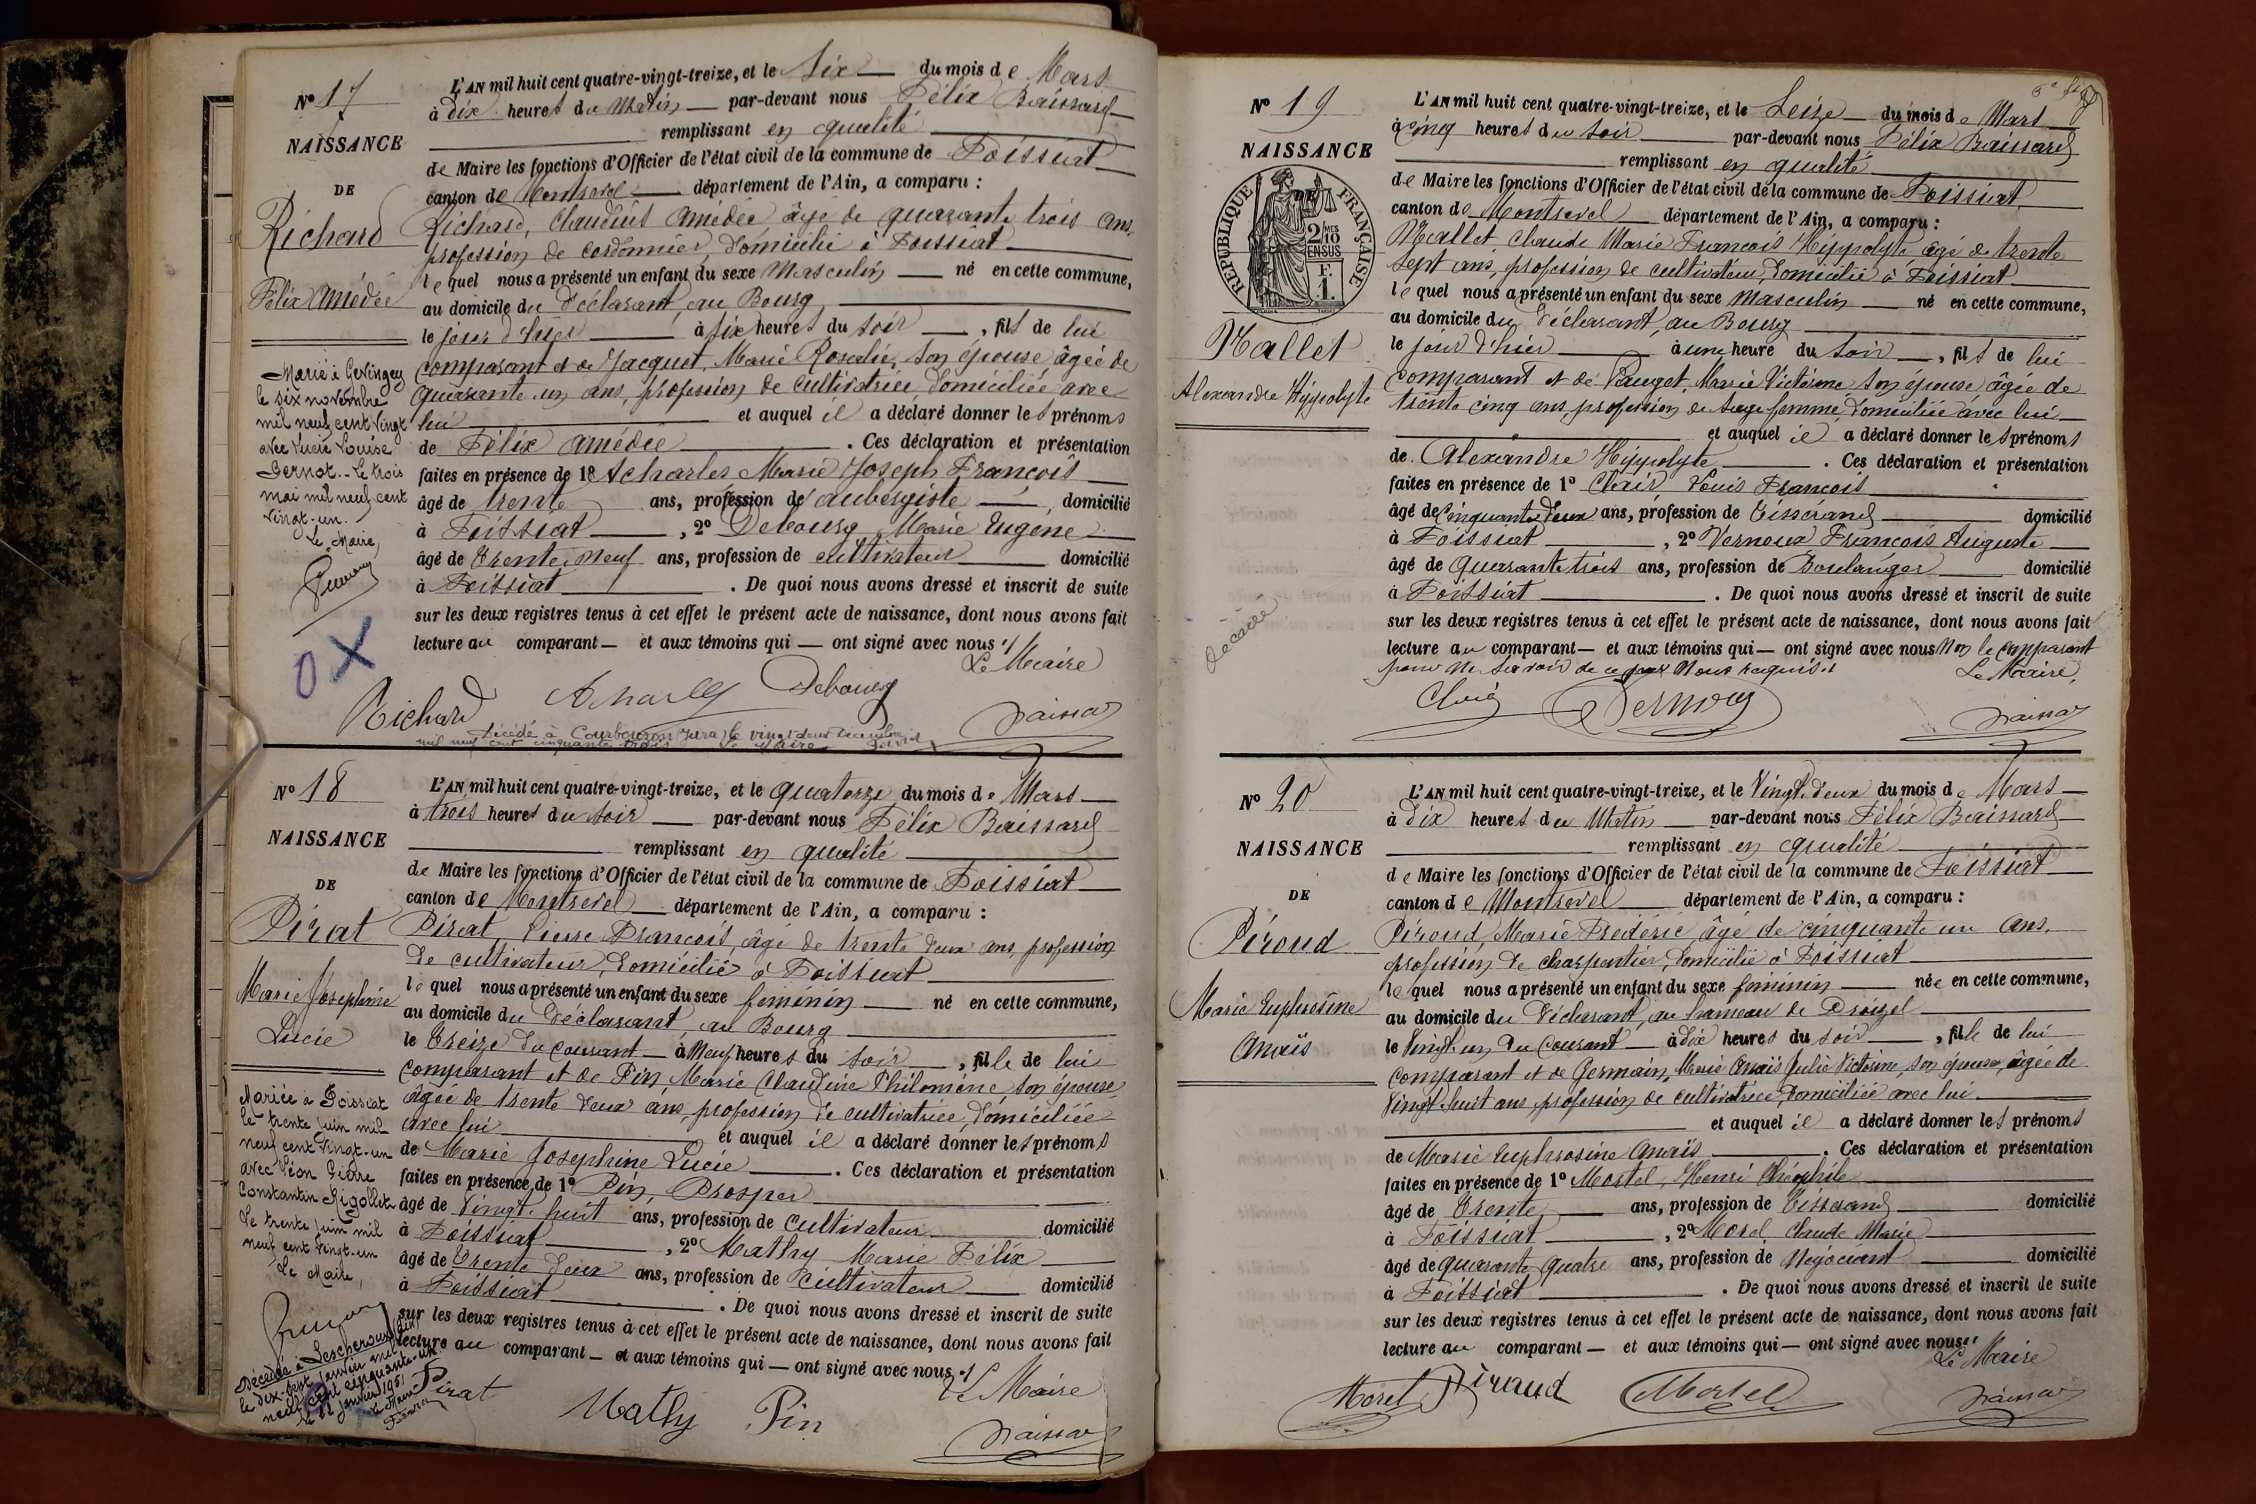 N° 17
NAISSANCE
DE
Richard
Félix Amédée
Marié à Gevingey
le six novembre
mil neuf cent vingt
avec Lucie Louise
Gernot. Le trois
mai mil neuf cent
vingt-un.
Le Maire,
L'AN mil huit cent quatre-vingt-treize, et le Six du mois de Mars
à dix heures du Matin par-devant nous Félix Baissard
remplissant en qualité
de Maire les fonctions d'Officier de l'état civil de la commune de Foissiat
canton de Montrevel département de l'Ain, a comparu :
Richard, Claudius Amédée âgé de quarante trois ans,
profession de cordonnier, domicilié à Foissiat
lequel nous a présenté un enfant du sexe Masculin né en cette commune,
au domicile du Déclarant, au Bourg
le jour d'hier à six heures du soir, fils de lui
comparant et de Jacquet, Marie Rosalie, son épouse âgée de
quarante un ans, profession de cultivatrice, domiciliée avec
lui et auquel il a déclaré donner les prénoms
de Félix Amédée. Ces déclaration et présentation
faites en présence de 1° Acharles Marie Joseph François
âgé de trente ans, profession de aubergiste, domicilié
à Foissiat, 2° Debourg, Marie Eugène
âgé de trente neuf ans, profession de cultivateur domicilié
à Foissiat. De quoi nous avons dressé et inscrit de suite
sur les deux registres tenus à cet effet le présent acte de naissance, dont nous avons fait
lecture au comparant et aux témoins qui ont signé avec nous
Le Maire
Richard Debourg Baissard
Décédé à Courbouzon (Jura) le vingt deux décembre
mil neuf cent cinquante trois Le Maire
N° 18
NAISSANCE
DE
Pirat
Marie Joséphine
Lucie
Mariée à Foissiat
le trente juin mil
neuf cent vingt-un
avec Léon Pierre
Constantin Rigollet
Le trente juin mil
neuf cent vingt-un
Le Maire,
Décédée à Lescheroux (Ain)
le dix-sept janvier mil
neuf cent cinquante-un
le 22 janvier 1951
Le Maire
L'AN mil huit cent quatre-vingt-treize, et le quatorze du mois de Mars
à trois heures du soir par-devant nous Félix Baissard
remplissant en qualité
de Maire les fonctions d'Officier de l'état civil de la commune de Foissiat
canton de Montrevel département de l'Ain, a comparu :
Pirat Pierre François, âgé de trente deux ans, profession
de cultivateur, domicilié à Foissiat
lequel nous a présenté un enfant du sexe féminin né en cette commune,
au domicile du Déclarant, au Bourg
le treize du courant à neuf heures du soir, fille de lui
comparant et de Pin, Marie Claudine Philomène son épouse
âgée de trente deux ans, profession de cultivatrice, domiciliée
avec lui et auquel il a déclaré donner les prénoms
de Marie Joséphine Lucie. Ces déclaration et présentation
faites en présence de 1° Pin, Prosper
âgé de vingt huit ans, profession de cultivateur domicilié
à Foissiat, 2° Mathy Marie Félix
âgé de trente deux ans, profession de cultivateur domicilié
à Foissiat. De quoi nous avons dressé et inscrit de suite
sur les deux registres tenus à cet effet le présent acte de naissance, dont nous avons fait
lecture au comparant et aux témoins qui ont signé avec nous
Le Maire
Pirat Mathy Pin Baissard
N° 19
NAISSANCE
DE
RÉPUBLIQUE FRANÇAISE
2 MES 10
EN SUS
F.
1.
Mallet
Alexandre Hippolyte
Décédé
L'AN mil huit cent quatre-vingt-treize, et le Seize du mois de Mars
à cinq heures du soir par-devant nous Félix Baissard
remplissant en qualité
de Maire les fonctions d'Officier de l'état civil de la commune de Foissiat
canton de Montrevel département de l'Ain, a comparu :
Mallet, Claude Marie François Hippolyte âgé de trente
sept ans, profession de cultivateur, domicilié à Foissiat
lequel nous a présenté un enfant du sexe masculin né en cette commune,
au domicile du Déclarant, au Bourg
le jour d'hier à une heure du soir, fils de lui
comparant et de Pauget, Marie Victorine son épouse âgée de
trente cinq ans, profession de sage femme, domiciliée avec lui
et auquel il a déclaré donner les prénoms
de Alexandre Hippolyte. Ces déclaration et présentation
faites en présence de 1° Clair Louis François
âgé de cinquante deux ans, profession de tisserand domicilié
à Foissiat, 2° Vernoux François Auguste
âgé de quarante trois ans, profession de Boulanger domicilié
à Foissiat. De quoi nous avons dressé et inscrit de suite
sur les deux registres tenus à cet effet le présent acte de naissance, dont nous avons fait
lecture au comparant et aux témoins qui ont signé avec nous Non le comparant
pour ne savoir de ce par nous requis.
Le Maire,
Clair Vernoux Baissard
N° 20
NAISSANCE
DE
Piroud
Marie Euphrosine
Anaïs
L'AN mil huit cent quatre-vingt-treize, et le Vingt deux du mois de Mars
à dix heures du Matin par-devant nous Félix Baissard
remplissant en qualité
de Maire les fonctions d'Officier de l'état civil de la commune de Foissiat
canton de Montrevel département de l'Ain, a comparu :
Piroud, Marie Frédéric âgé de cinquante un ans,
profession de charpentier, domicilié à Foissiat
lequel nous a présenté un enfant du sexe féminin née en cette commune,
au domicile du Déclarant, au hameau de
le vingt un du courant à dix heures du soir, fille de lui
comparant et de Germain, Marie Anaïs Julie Victorine, son épouse, âgée de
vingt huit ans profession de cultivatrice, domiciliée avec lui.
et auquel il a déclaré donner les prénoms
de Marie Euphrosine Anaïs. Ces déclaration et présentation
faites en présence de 1° Mortel, Henri Théophile
âgé de trente ans, profession de tisserand domicilié
à Foissiat, 2° Morel Claude Marie
âgé de quarante quatre ans, profession de Négociant domicilié
à Foissiat. De quoi nous avons dressé et inscrit de suite
sur les deux registres tenus à cet effet le présent acte de naissance, dont nous avons fait
lecture au comparant et aux témoins qui ont signé avec nous
Le Maire
Morel Piroud Mortel Baissard